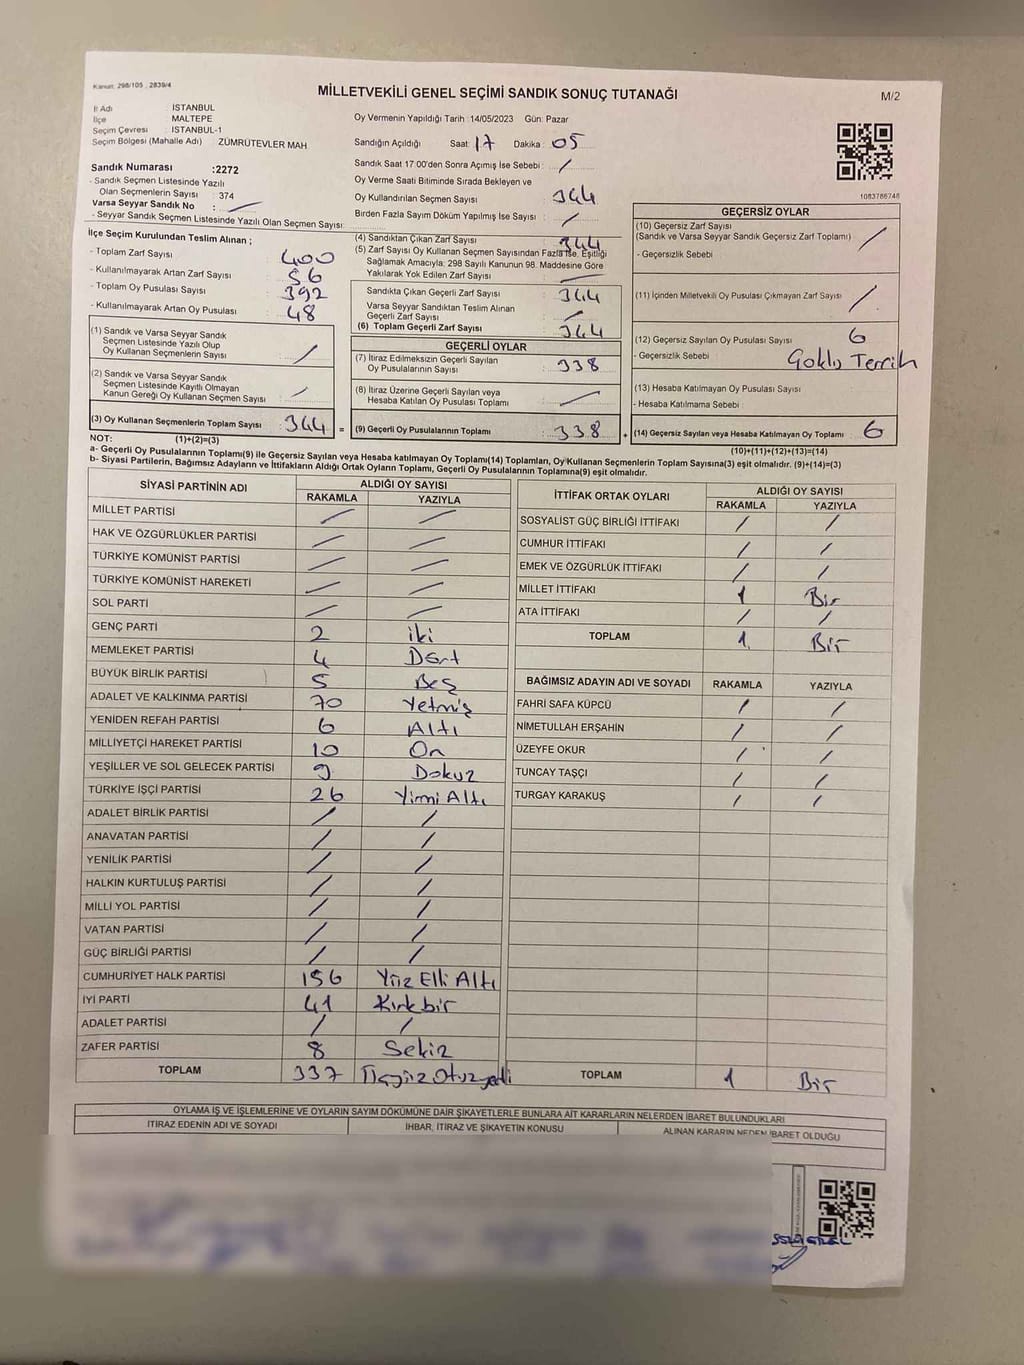 Kanun: 298/105 , 2839/4
MİLLETVEKİLİ GENEL SEÇİMİ SANDIK SONUÇ TUTANAĞI
M/2
İl Adı : İSTANBUL
İlçe : MALTEPE
Seçim Çevresi : İSTANBUL-1
Seçim Bölgesi (Mahalle Adı) ZÜMRÜTEVLER MAH
Sandık Numarası :2272
- Sandık Seçmen Listesinde Yazılı
Olan Seçmenlerin Sayısı : 374
Varsa Seyyar Sandık No : /
- Seyyar Sandık Seçmen Listesinde Yazılı Olan Seçmen Sayısı:
Oy Vermenin Yapıldığı Tarih :14/05/2023 Gün: Pazar
Sandığın Açıldığı Saat: 17 Dakika: 05
Sandık Saat 17:00'den Sonra Açımış İse Sebebi : /
Oy Verme Saati Bitiminde Sırada Bekleyen ve
Oy Kullandırılan Seçmen Sayısı : 344
Birden Fazla Sayım Döküm Yapılmış İse Sayısı : /
1083766748
İlçe Seçim Kurulundan Teslim Alınan ;
- Toplam Zarf Sayısı : 400
- Kullanılmayarak Artan Zarf Sayısı : 56
- Toplam Oy Pusulası Sayısı : 392
- Kullanılmayarak Artan Oy Pusulası : 48
(1) Sandık ve Varsa Seyyar Sandık
Seçmen Listesinde Yazılı Olup
Oy Kullanan Seçmenlerin Sayısı : /
(2) Sandık ve Varsa Seyyar Sandık
Seçmen Listesinde Kayıtlı Olmayan
Kanun Gereği Oy Kullanan Seçmen Sayısı : /
(3) Oy Kullanan Seçmenlerin Toplam Sayısı : 344 =
(4) Sandıktan Çıkan Zarf Sayısı : 344
(5) Zarf Sayısı Oy Kullanan Seçmen Sayısından Fazla İse, Eşitliği
Sağlamak Amacıyla; 298 Sayılı Kanunun 98. Maddesine Göre
Yakılarak Yok Edilen Zarf Sayısı
Sandıkta Çıkan Geçerli Zarf Sayısı : 344
Varsa Seyyar Sandıktan Teslim Alınan
Geçerli Zarf Sayısı : /
(6) Toplam Geçerli Zarf Sayısı : 344
GEÇERLİ OYLAR
(7) İtiraz Edilmeksizin Geçerli Sayılan
Oy Pusulalarının Sayısı : 338
(8) İtiraz Üzerine Geçerli Sayılan veya
Hesaba Katılan Oy Pusulası Toplamı : /
(9) Geçerli Oy Pusulalarının Toplamı : 338 +
GEÇERSİZ OYLAR
(10) Geçersiz Zarf Sayısı
(Sandık ve Varsa Seyyar Sandık Geçersiz Zarf Toplamı) /
- Geçersizlik Sebebi :
(11) İçinden Milletvekili Oy Pusulası Çıkmayan Zarf Sayısı : /
(12) Geçersiz Sayılan Oy Pusulası Sayısı : 6
- Geçersizlik Sebebi :
(13) Hesaba Katılmayan Oy Pusulası Sayısı
- Hesaba Katılmama Sebebi :
(14) Geçersiz Sayılan veya Hesaba Katılmayan Oy Toplamı : 6
NOT: (1)+(2)=(3)
(10)+(11)+(12)+(13)=(14)
a- Geçerli Oy Pusulalarının Toplamı(9) ile Geçersiz Sayılan veya Hesaba katılmayan Oy Toplamı(14) Toplamları, Oy Kullanan Seçmenlerin Toplam Sayısına(3) eşit olmalıdır. (9)+(14)=(3)
b- Siyasi Partilerin, Bağımsız Adayların ve İttifakların Aldığı Ortak Oyların Toplamı, Geçerli Oy Pusulalarının Toplamına(9) eşit olmalıdır.
SİYASİ PARTİNİN ADI ALDIĞI OY SAYISI
RAKAMLA YAZIYLA
MİLLET PARTİSİ / /
HAK VE ÖZGÜRLÜKLER PARTİSİ / /
TÜRKİYE KOMÜNİST PARTİSİ / /
TÜRKİYE KOMÜNİST HAREKETİ / /
SOL PARTİ / /
GENÇ PARTİ 2 iki
MEMLEKET PARTİSİ 4 Dört
BÜYÜK BİRLİK PARTİSİ 5 Beş
ADALET VE KALKINMA PARTİSİ 70 Yetmiş
YENİDEN REFAH PARTİSİ 6 Altı
MİLLİYETÇİ HAREKET PARTİSİ 10 On
YEŞİLLER VE SOL GELECEK PARTİSİ 9 Dokuz
TÜRKİYE İŞÇİ PARTİSİ 26 Yirmi Altı
ADALET BİRLİK PARTİSİ / /
ANAVATAN PARTİSİ / /
YENİLİK PARTİSİ / /
HALKIN KURTULUŞ PARTİSİ / /
MİLLİ YOL PARTİSİ / /
VATAN PARTİSİ / /
GÜÇ BİRLİĞİ PARTİSİ / /
CUMHURİYET HALK PARTİSİ 156 Yüz Elli Altı
İYİ PARTİ 41 Kırkbir
ADALET PARTİSİ / /
ZAFER PARTİSİ 8 Sekiz
TOPLAM 337 Üçyüz Otuzyedi
İTTİFAK ORTAK OYLARI ALDIĞI OY SAYISI
RAKAMLA YAZIYLA
SOSYALİST GÜÇ BİRLİĞİ İTTİFAKI / /
CUMHUR İTTİFAKI / /
EMEK VE ÖZGÜRLÜK İTTİFAKI / /
MİLLET İTTİFAKI 1 Bir
ATA İTTİFAKI / /
TOPLAM 1 Bir
BAĞIMSIZ ADAYIN ADI VE SOYADI RAKAMLA YAZIYLA
FAHRİ SAFA KÜPCÜ / /
NİMETULLAH ERŞAHİN / /
ÜZEYFE OKUR / /
TUNCAY TAŞÇI / /
TURGAY KARAKUŞ / /
TOPLAM 1 Bir
OYLAMA İŞ VE İŞLEMLERİNE VE OYLARIN SAYIM DÖKÜMÜNE DAİR ŞİKAYETLERLE BUNLARA AİT KARARLARIN NELERDEN İBARET BULUNDUKLARI
İTİRAZ EDENİN ADI VE SOYADI İHBAR, İTİRAZ VE ŞİKAYETİN KONUSU ALINAN KARARIN NEDEN İBARET OLDUĞU